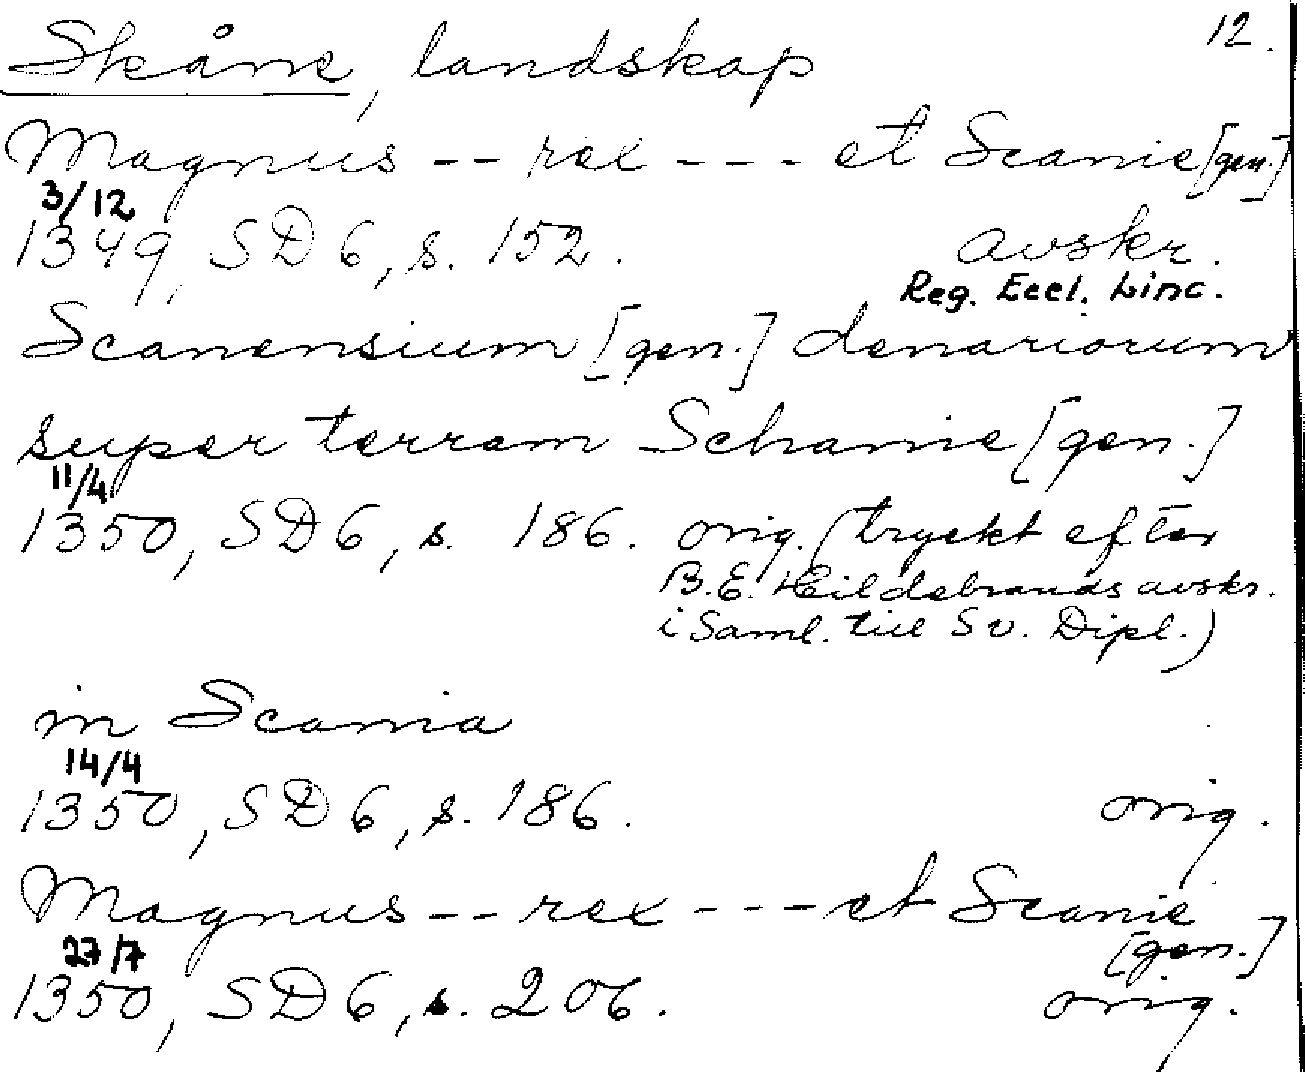 12.
Skåne, landskap
Magnus -- rex --- et Scanie [gen.]
3/12
1349, SD 6, s. 152. avskr.
Reg. Eccl. Linc.
Scanensium [gen.] denariorum
super terram Schanie [gen.]
11/4
1350, SD 6, s. 186. orig. (tryckt efter
B.E. Hildebrands avskr.
i Saml. till Sv. Dipl.)
in Scania
14/4
1350, SD 6, s. 186. orig.
Magnus -- rex --- et Scanie
[gen.]
27/7
1350, SD 6, s. 206. orig.